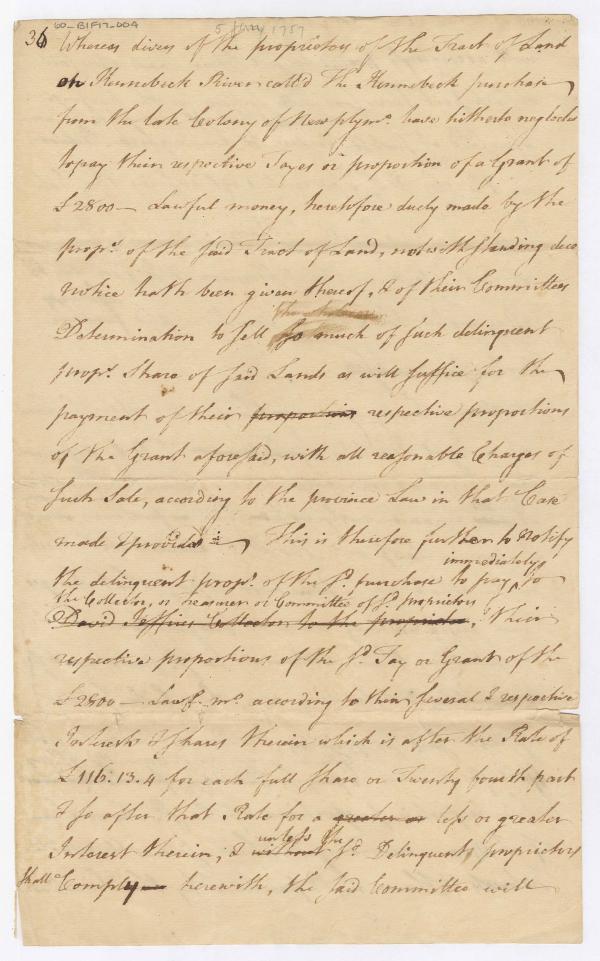 60_B1F17_004
5 Jany 1757
36 Whereas divers of the proprietors of the Tract of Land
on Kennebeck River call'd The Kennebeck purchase
from the late Colony of New plymo. have hitherto neglected
to pay their respective Taxes or proportion of a Grant of
£2800 — Lawful money, heretofore duely made by the
propr. of the said Tract of Land, notwithstanding due
notice hath been given thereof, & of their Committees
Determination to sell so much of such delinquent
propr. Share of said Lands as will suffice for the
payment of their proportions respective proportions
of the Grant aforesaid, with all reasonable Charges of
such Sale, according to the province Law in that Case
made & provided — This is therefore further to Notify
immediately
the delinquent propr. of the sd. purchase to pay ^ to
the Collector, or Treasurer or Committee of sd. propriotors
David Jeffries Collector to the proprietors, their
respective proportions of the sd. Tax or Grant of the
£2800 — Lawf. mo. according to their several & respective
Interests & Shares therein which is after the Rate of
£116.13.4 for each full Share or Twenty fourth part
& so after that Rate for a greater or less or greater
unless the
Interest therein; & without sd. Delinquent proprietors
shall Comply herewith, the said Committee will